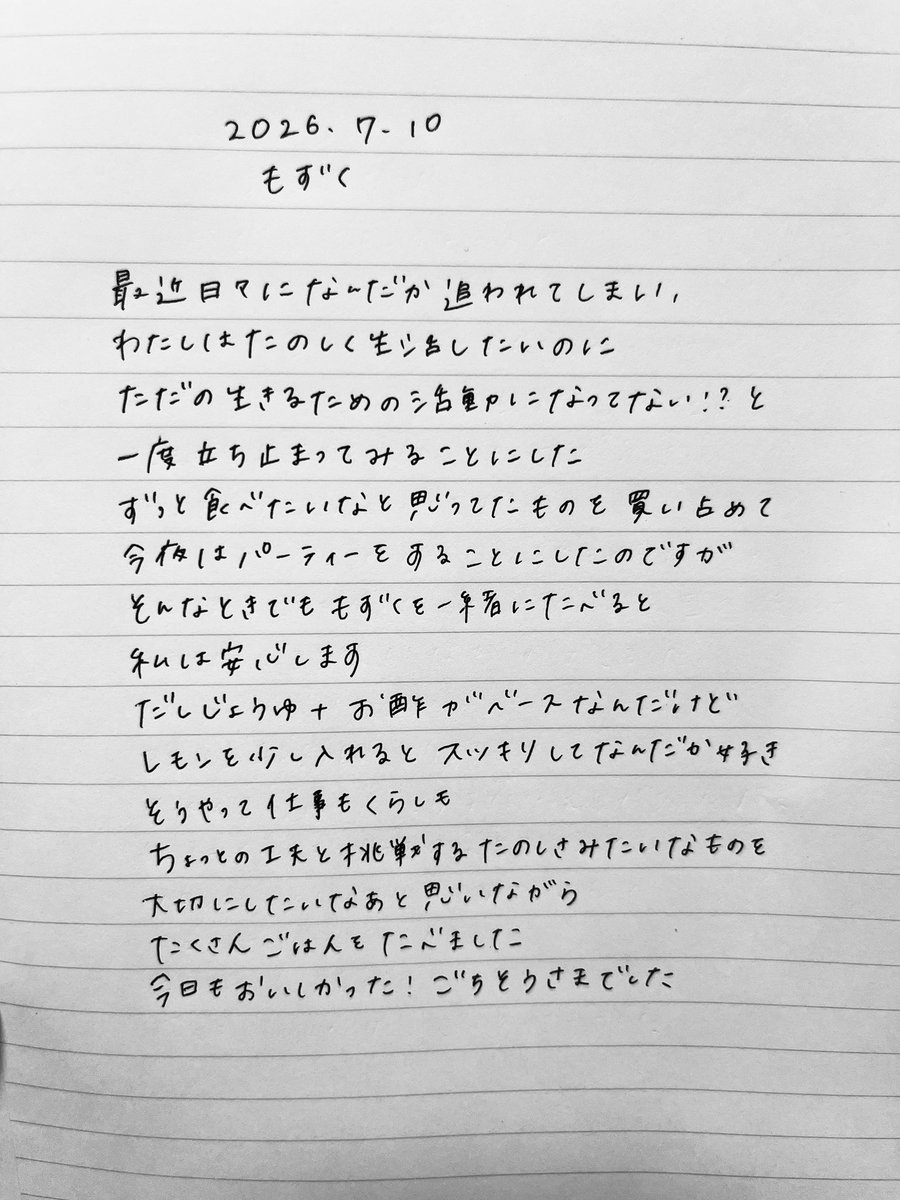 2026.7.10
もずく
最近日々になんだか追われてしまい、
わたしはたのしく生活したいのに
ただの生きるための活動になってない!?と
一度立ち止まってみることにした
ずっと食べたいなと思ってたものを買い占めて
今夜はパーティーをすることにしたのですが
そんなときでももずくを一緒にたべると
私は安心します
だしじょうゆ+お酢がベースなんだけど
レモンを少し入れるとスッキリしてなんだか好き
そうやって仕事もくらしも
ちょっとの工夫と挑戦するたのしさみたいなものを
大切にしたいなあと思いながら
たくさんごはんをたべました
今日もおいしかった!ごちそうさまでした